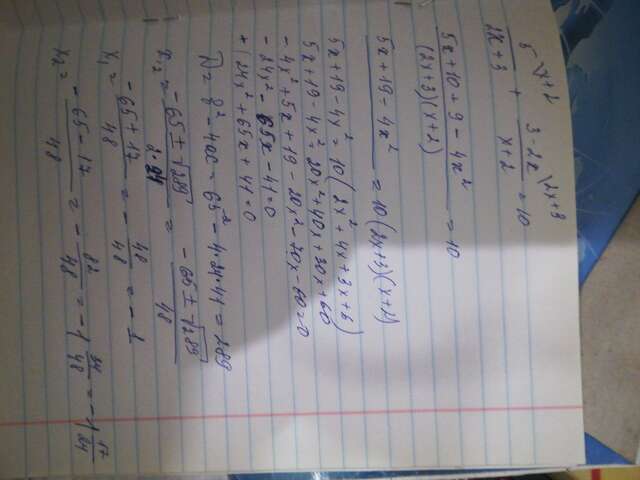 5 \x+2   3-2x \2x+3
---- + ---- = 10
2x+3   x+2
5x+10+9-4x² / (2x+3)(x+2) = 10
5x+19-4x² = 10(2x+3)(x+2)
5x+19-4x² = 10(2x²+4x+3x+6)
5x+19-4x² = 20x²+40x+30x+60
-4x²+5x+19-20x²-70x-60=0
-24x²-65x-41=0
+(24x²+65x+41=0
D=b²-4ac=65²-4·24·41=289
x₁,₂ = (-65±√289)/(2·24) = (-65±√289)/48
x₁ = (-65+17)/48 = -48/48 = -1
x₂ = (-65-17)/48 = -82/48 = -1 34/48 = -1 17/24